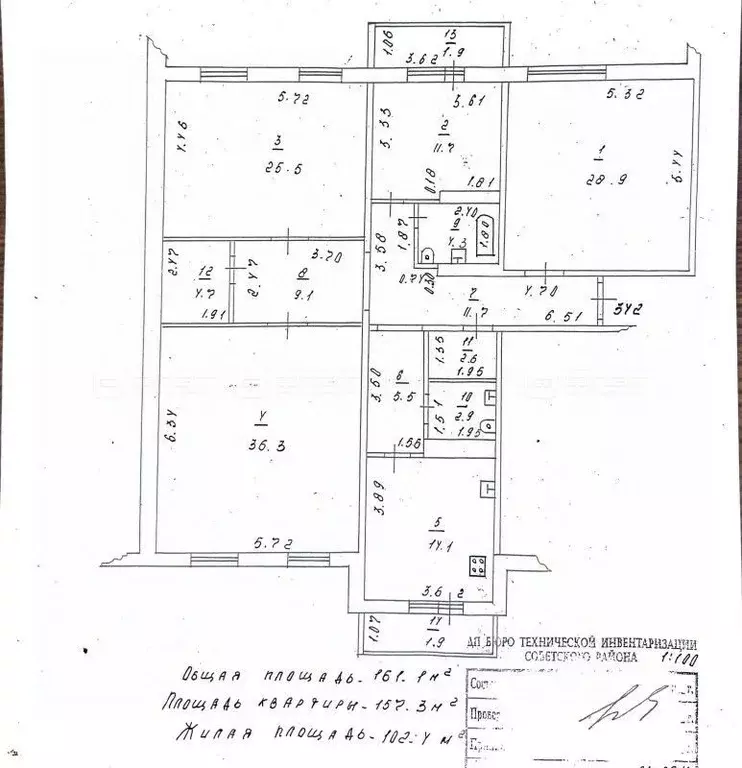 1.06
13
1.9
3.62
5.72
3.61
5.32
4.46
3
25.5
3.33
2
11.7
0.18
1.81
1
28.9
5.44
2.40
9
4.3
1.80
1.87
3.58
2.47
12
4.7
1.91
2.47
8
9.1
3.70
0.20
7
11.7
4.70
6.51
342
1.35
11
2.6
1.95
3.50
6
5.5
1.56
1.51
10
2.9
1.95
6.34
4
36.3
5.72
3.89
5
14.1
3.62
1.07
14
1.9
ДП БЮРО ТЕХНИЧЕСКОЙ ИНВЕНТАРИЗАЦИИ
СОВЕТСКОГО РАЙОНА 1:100
Общая площадь - 161.1 м²
Площадь квартиры - 157.3 м²
Жилая площадь - 102.4 м²